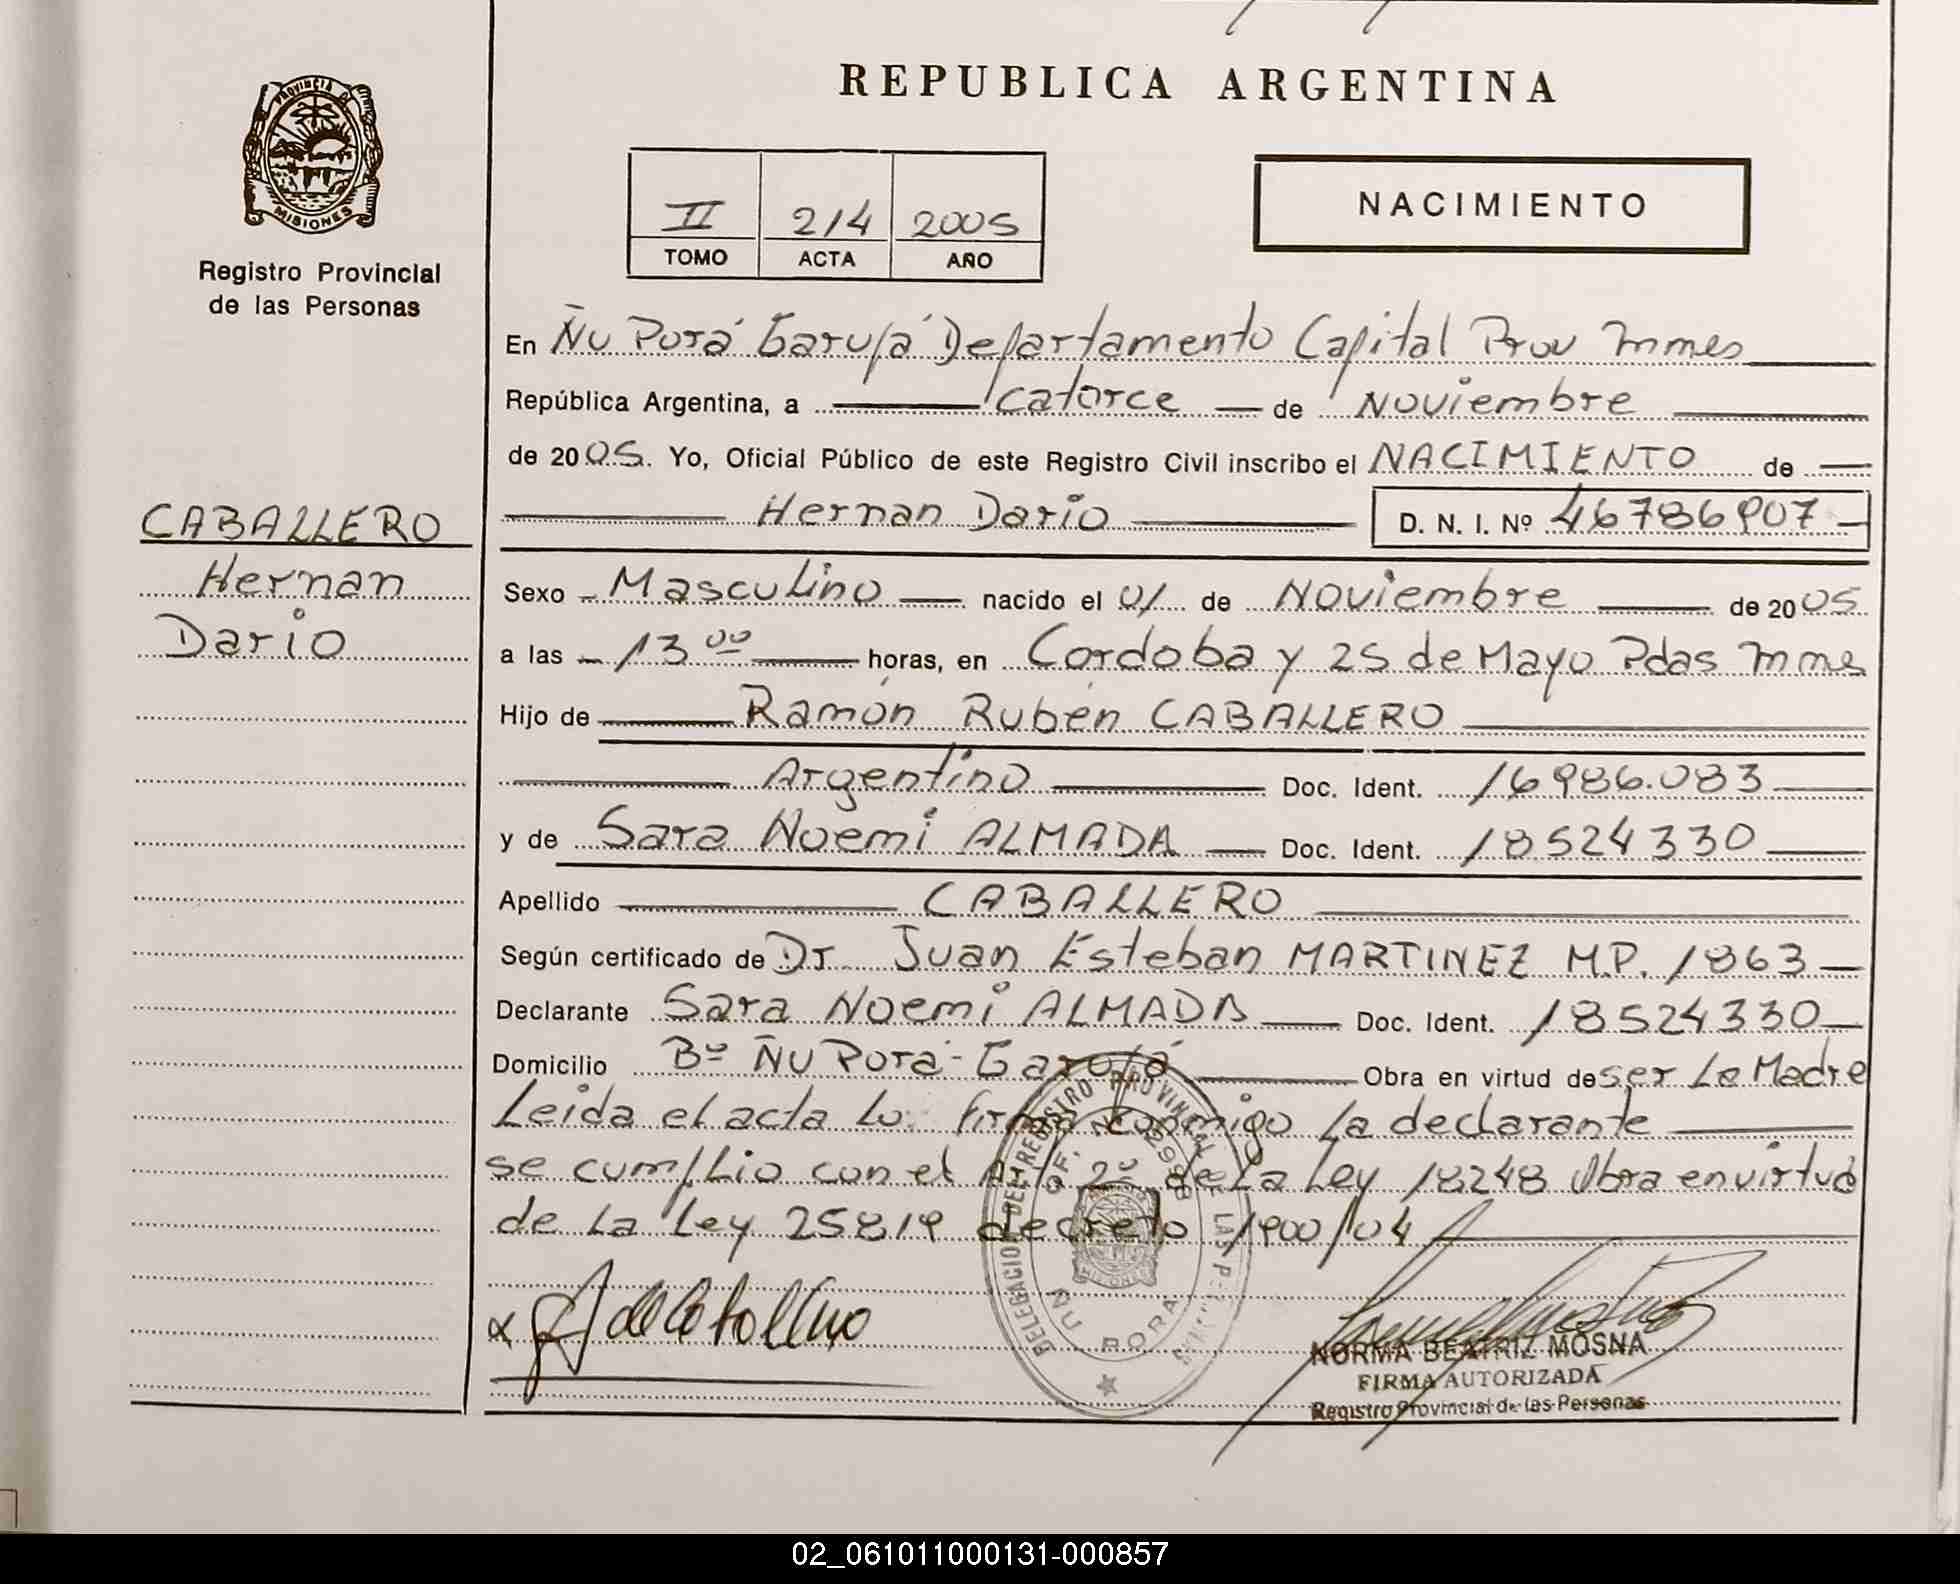 REPUBLICA ARGENTINA
PROVINCIA DE MISIONES
Registro Provincial
de las Personas
II 214 2005
TOMO ACTA AÑO
NACIMIENTO
En Ñu Porá Garupá Departamento Capital Prov Mnes
República Argentina, a catorce de Noviembre
de 2005. Yo, Oficial Público de este Registro Civil inscribo el NACIMIENTO de
Hernan Dario D. N. I. Nº 46786907
CABALLERO
Hernan
Dario
Sexo Masculino nacido el 01 de Noviembre de 2005
a las 13 00 horas, en Córdoba y 25 de Mayo Pdas Mnes
Hijo de Ramón Rubén CABALLERO
Argentino Doc. Ident. 16986.083
y de Sara Noemi ALMADA Doc. Ident. 18524330
Apellido CABALLERO
Según certificado de Dr. Juan Esteban MARTINEZ M.P. 1863
Declarante Sara Noemi ALMADA Doc. Ident. 18524330
Domicilio Bº Ñu Porá - Garupá Obra en virtud de ser La Madre
Leida el acta La firma conmigo la declarante
se cumplio con el Art 2º de La Ley 18248 Obra en virtud
de La Ley 25819 decreto 1900/04
DELEGACION DEL REGISTRO PROVINCIAL DE LAS PERSONAS
ÑU PORA
NORMA BEATRIZ MOSNA
FIRMA AUTORIZADA
Registro Provincial de las Personas
02_061011000131-000857